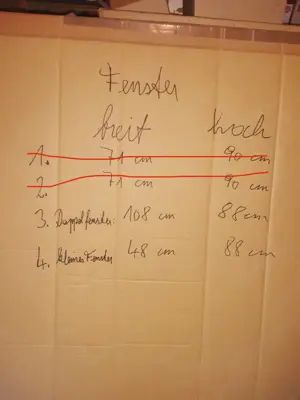 Fenster
breit hoch
1. 71 cm 90 cm
2. 71 cm 90 cm
3. Doppelfenster: 108 cm 88 cm
4. kleines Fenster 48 cm 88 cm